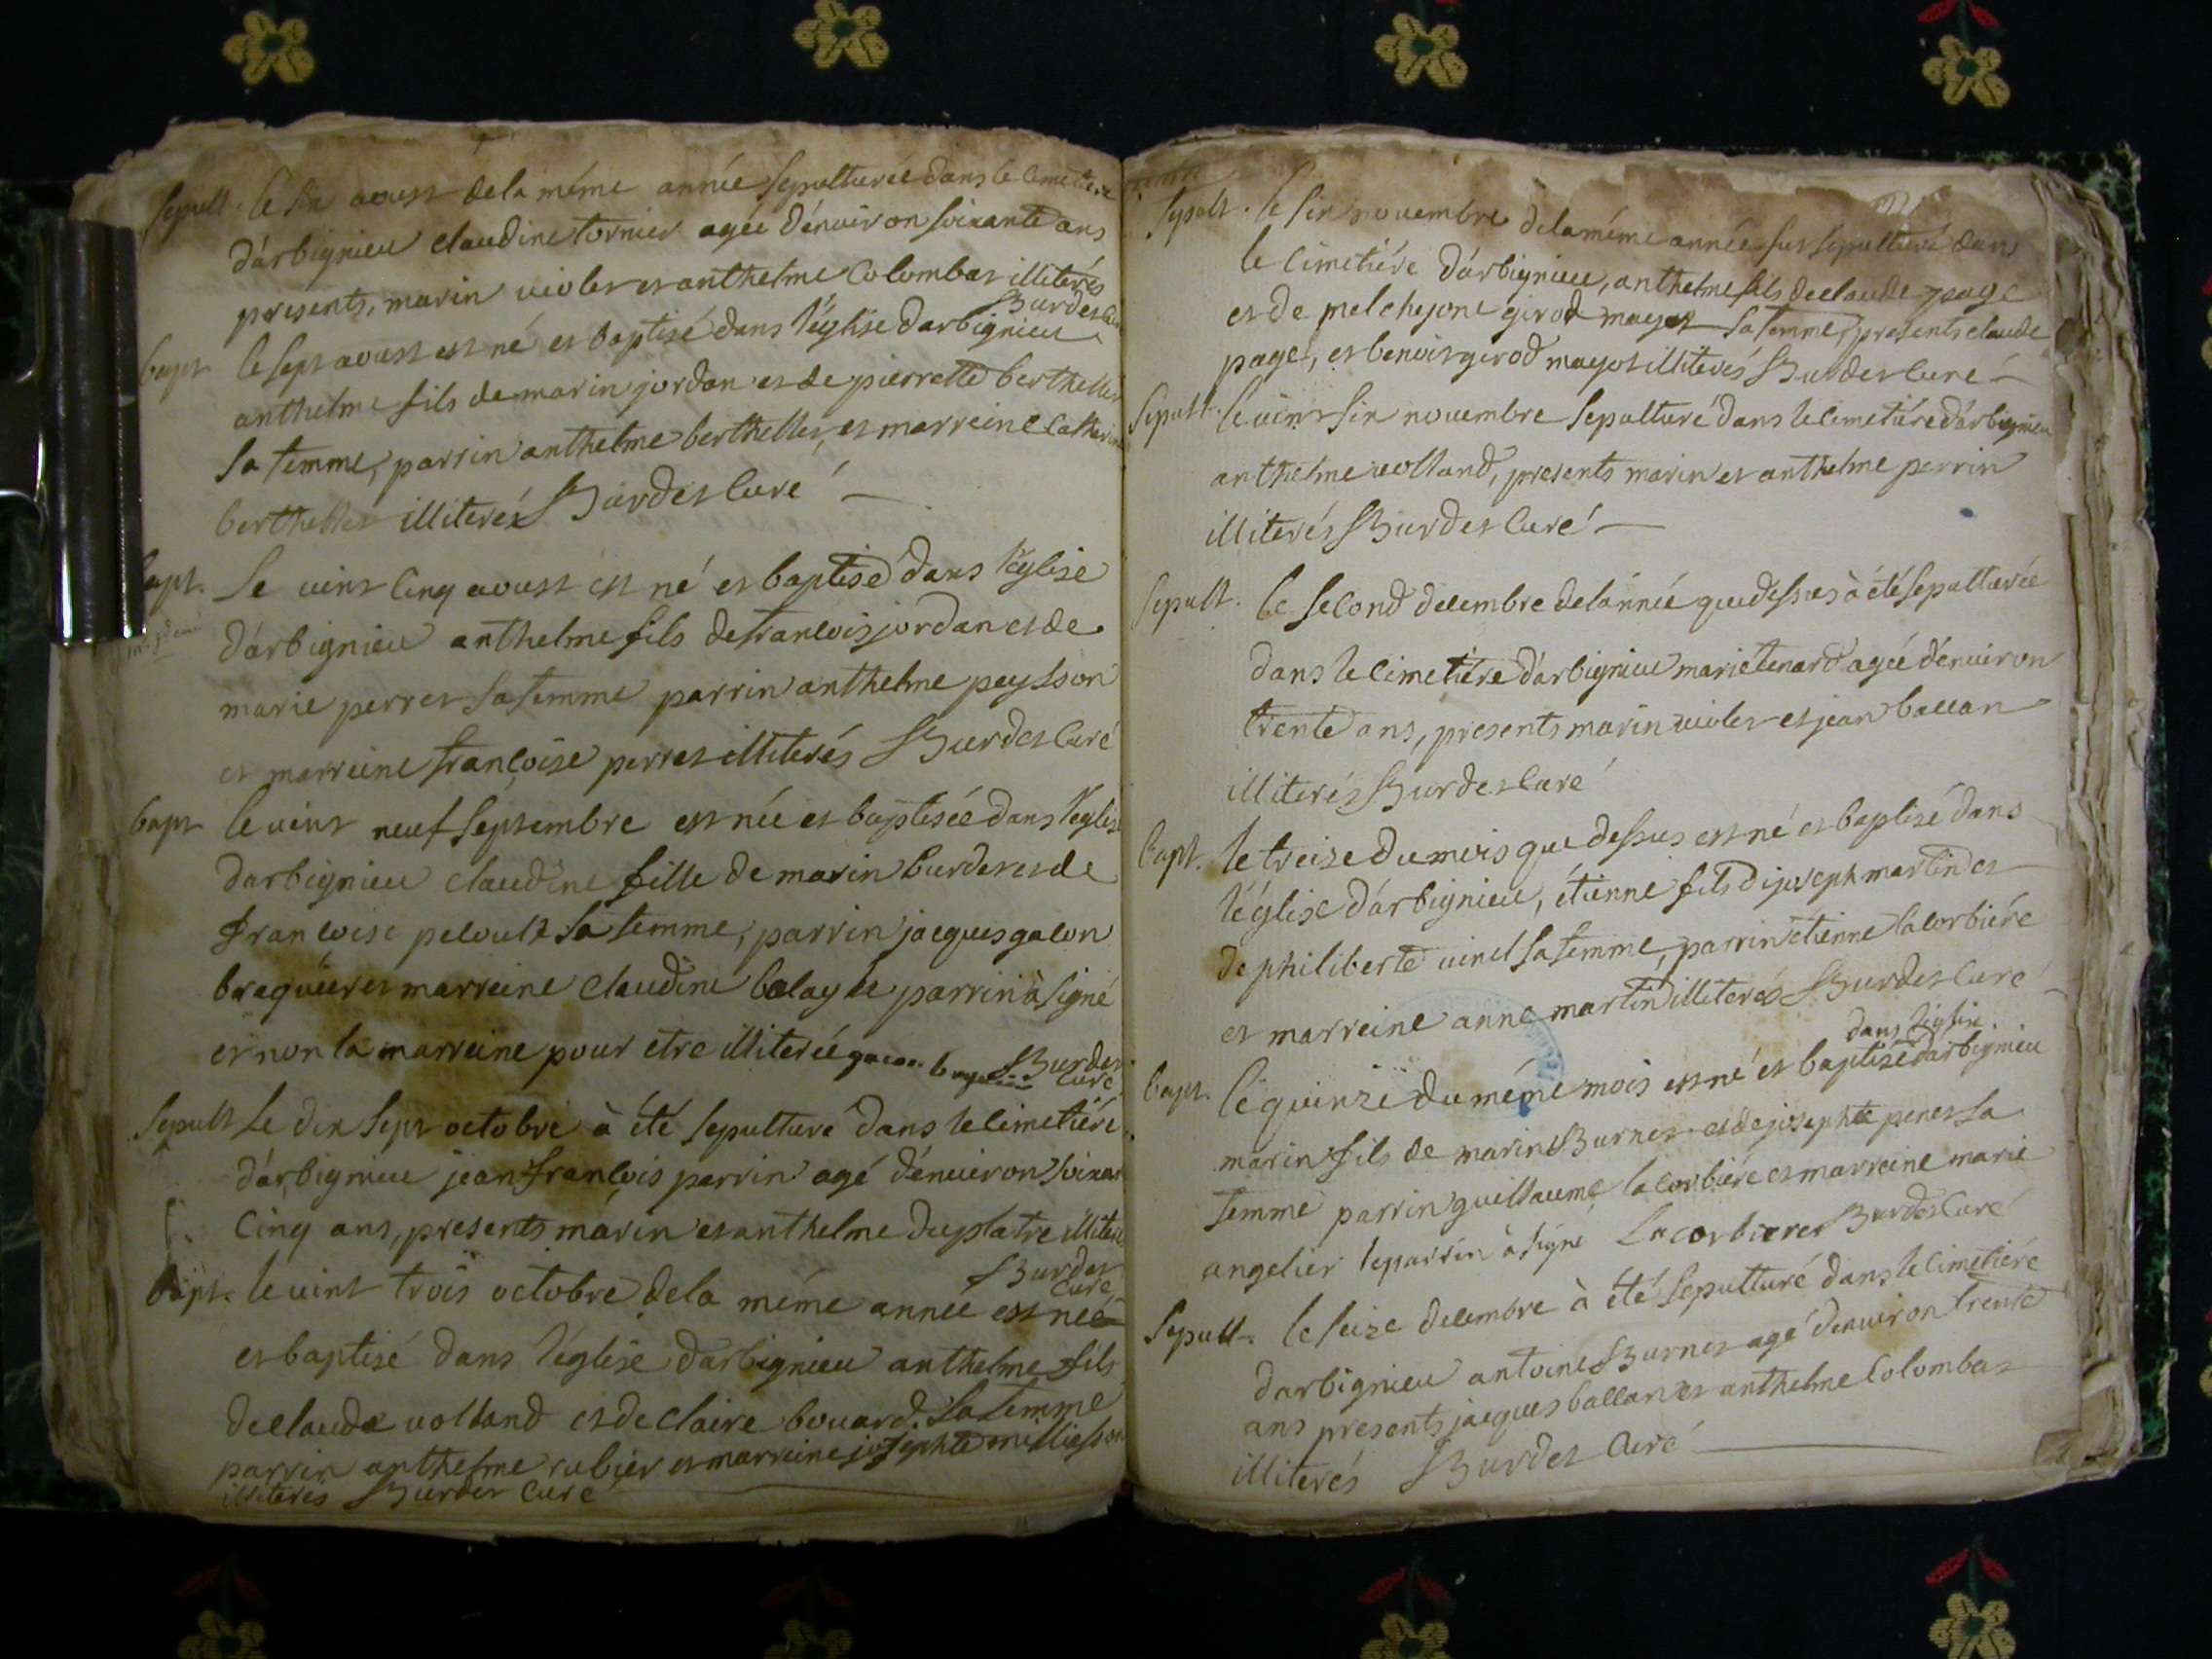 sepult. le six aoust de la méme année sepulturée dans le cimetiere
d'arbignieu claudine tornier agée d'enuiron soixante ans
presents, marin violet et anthelme Colombat illiterés
Burdet Curé
bapt. le sept aoust est né et baptisé dans l'églize d'arbignieu
anthelme fils de marin jordan et de pierrette berthellet
sa femme, parrin anthelme berthellet, et marreine Catherine
berthellet illiterés Burdet Curé
bapt. Le vint Cinq aoust est né et baptisé dans l'églize
d'arbignieu anthelme fils de francois jordan et de
marie perret sa femme parrin anthelme peysson
et marreine françoise perret illiterés Burdet Curé
bapt. le vint neuf septembre est née et baptisée dans l'églize
d'arbignieu claudine fille de marin burdet et de
francoise peloult sa femme, parrin jacques galon
et marreine claudine balay le parrin à signé
et non la marreine pour etre illiterée Burdet
Curé
Sepult Le dix sept octobre à été sepulturé dans le cimetiére
d'arbignieu jean françois perrin agé d'enuiron soixante
Cinq ans, presents marin et anthelme duplatre illiterés
Burdet
Curé
bapt. le vint trois octobre de la méme année est né
et baptisé dans l'églize d'arbignieu anthelme fils
de claude volland et de claire bouard sa femme
parrin anthelme rubier et marreine josephte milliesson
illiterés Burdet Curé
sepult. le six novembre de la méme année fut sepulturé dans
le cimetiére d'arbignieu, anthelme fils de claude page
et de melchejone girod mayot sa femme, presents claude
page, et benoit girod mayot illiterés Burdet Curé
Sepult. le vint six novembre sepulturé dans le cimetiére d'arbignieu
anthelme volland, presents marin et anthelme perrin
illiterés Burdet Curé
Sepult. le second decembre de l'année que dessus à été sepulturée
dans le cimetiére d'arbignieu marie tenard agée d'enuiron
trente ans, presents marin violet et jean ballan
illiterés Burdet Curé
bapt. le treize du mois que dessus est né et baptisé dans
l'églize d'arbignieu, étienne fils d joseph martin et
de philiberte vinel sa femme, parrin étienne lacorbiére
et marreine anne martin illiterés Burdet Curé
dans l'églize
bapt. le quinze du méme mois est né et baptisé d'arbignieu
marin fils de marin Burnet et de josephte peret sa
femme parrin guillaume lacorbiére et marreine marie
angelier le parrin à signé Lacorbiere Burdet Curé
Sepult. le seize decembre à été sepulturé dans le cimetiére
d'arbignieu antoine Burnet agé d'enuiron trente
ans presents jacques ballan et anthelme Colombat
illiterés Burdet Curé